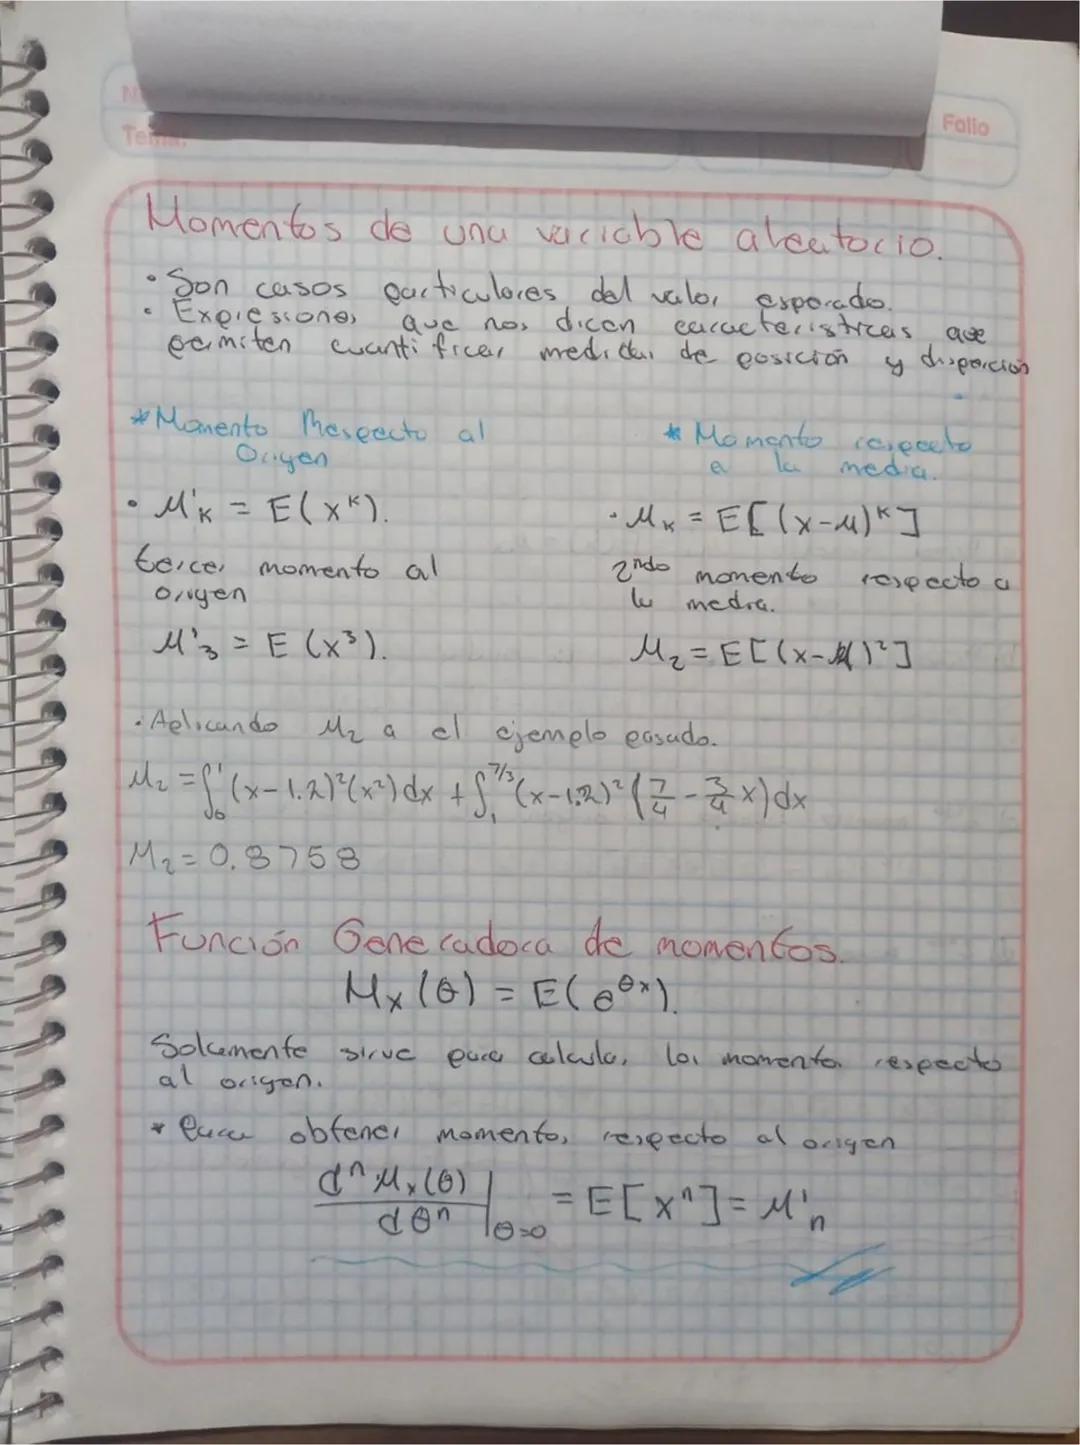 Folio
Tema:
Momentos de una variable aleatorio.
• Son casos particulares del valor esperado.
• Expresiones que nos dicen caracteristicas que
permiten cuantificar medidas de posición y dispercion
* Momento Respecto al
Origen
• M'k = E(x^k).
tercer momento al
origen
M'3 = E(x³).
* Momento respecto
a la media.
• Mk = E[(x-μ)^k]
2ndo momento respecto a
la media.
M2 = E[(x-μ)²]
• Aplicando M2 a el ejemplo pasado.
M2 = ∫₀¹ (x-1.2)²(x²)dx + ∫₁^7/3 (x-1.2)² (7/4 - 3/4 x)dx
M2 = 0.8758
Función Generadora de momentos.
Mx(θ) = E(e^θx).
Solamente sirve para calcular los momentos respecto
al origen.
* Para obtener momentos respecto al origen
d^n Mx(θ) / dθ^n |θ=0 = E[x^n] = M'n